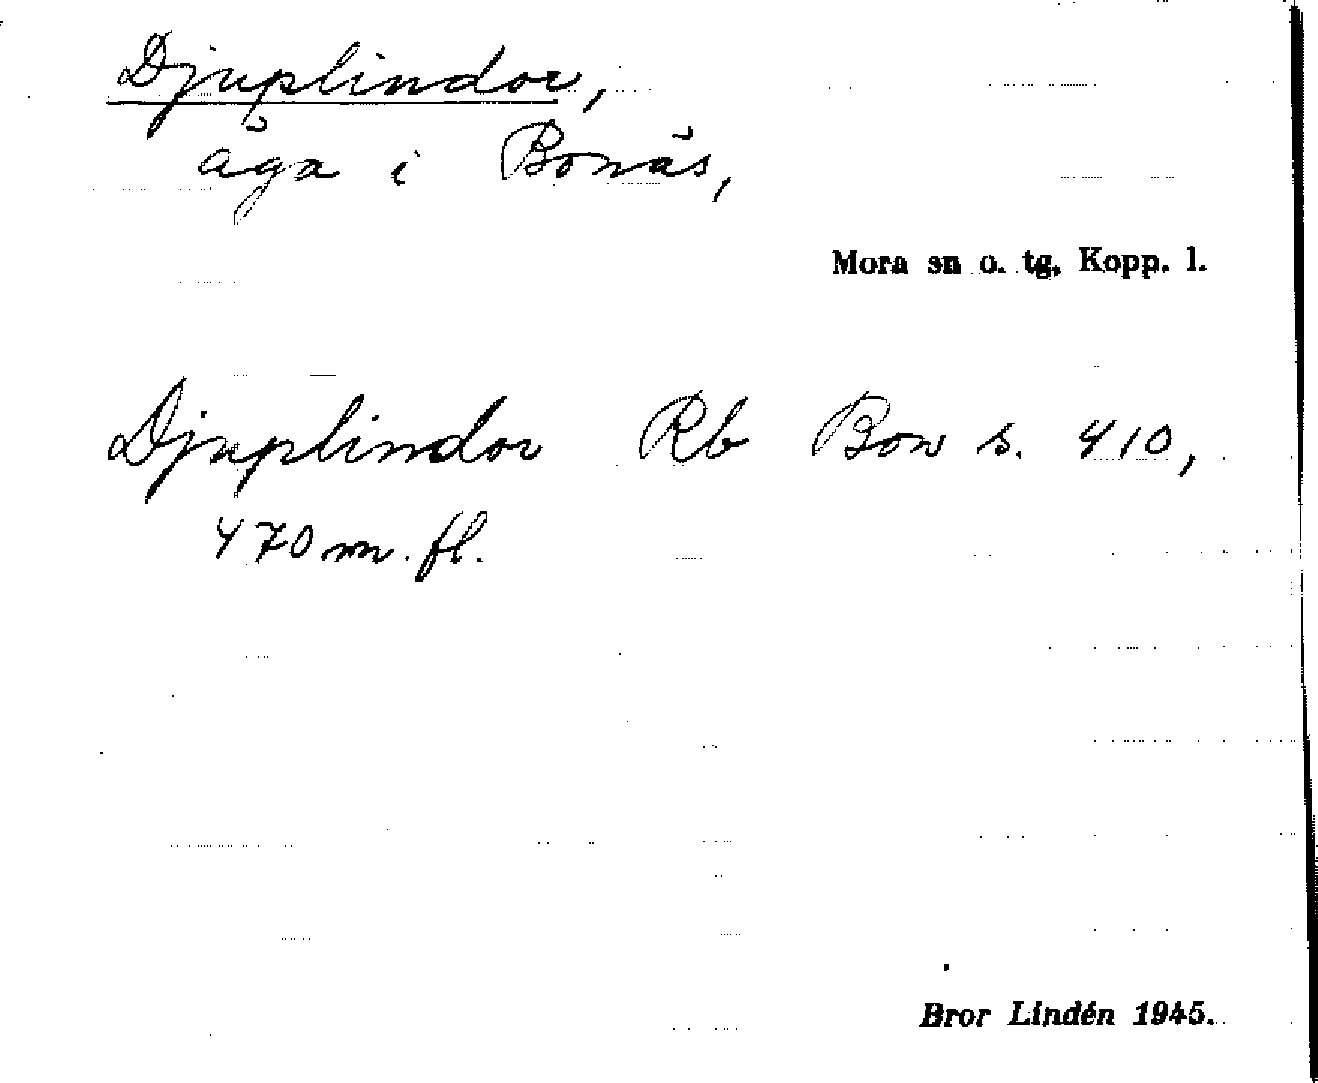 Djuplindor,
äga i Bonäs,
Mora sn o. tg, Kopp. l.
Djuplindor Rb Bon s. 410,
470 m. fl.
Bror Lindén 1945.